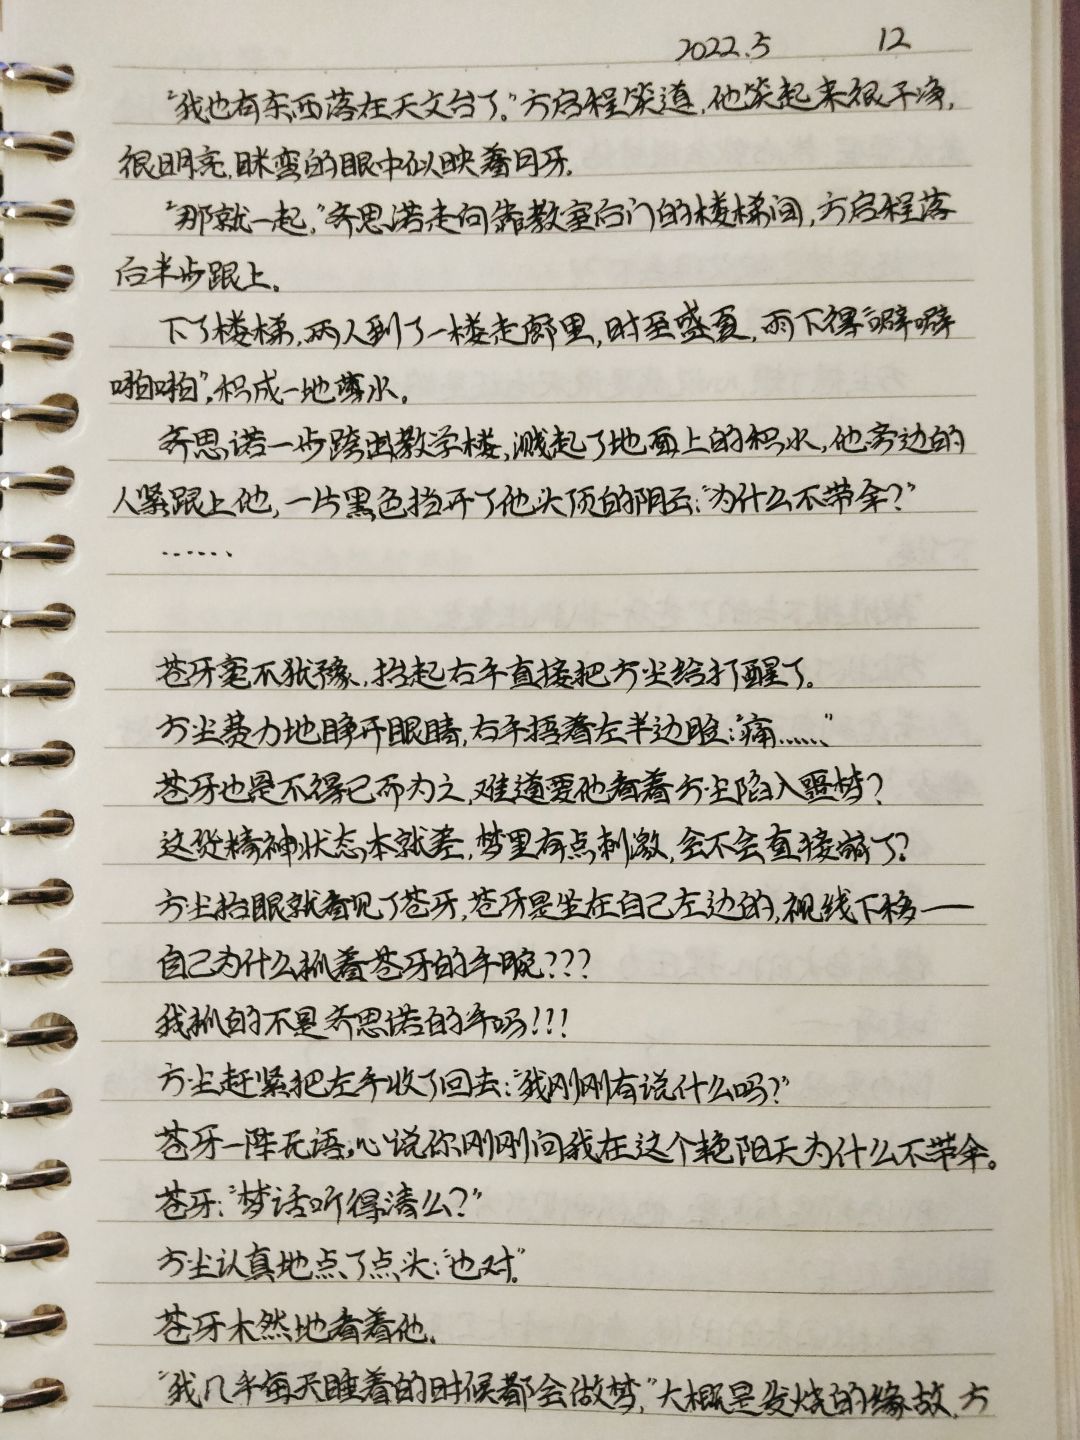 2022.5 12
“我也有东西落在天文台了。”方启程笑道，他笑起来很干净，
很明亮，眯弯的眼中似映着月牙。
“那就一起，”齐思诺走向靠教室后门的楼梯间，方启程落
后半步跟上。
下了楼梯，两人到了一楼走廊里，时至盛夏，雨下得“噼噼
啪啪”，积成一地薄水。
齐思诺一步跨出教学楼，溅起了地面上的积水，他旁边的
人紧跟上他，一片黑色挡开了他头顶的阴云：“为什么不带伞？”
……
苍牙毫不犹豫，抬起右手直接把方尘给打醒了。
方尘费力地睁开眼睛，右手捂着左半边脸：“痛……”
苍牙也是不得已而为之，难道要他看着方尘陷入噩梦？
这货精神状态本就差，梦里有点刺激，会不会直接嗝了？
方尘抬眼就看见了苍牙，苍牙是坐在自己左边的，视线下移——
自己为什么抓着苍牙的手腕？？？
我抓的不是齐思诺的手吗！！！
方尘赶紧把左手收了回去：“我刚刚有说什么吗？”
苍牙一阵无语，心说你刚刚问我在这个艳阳天为什么不带伞。
苍牙：“梦话听得清么？”
方尘认真地点了点头：“也对。”
苍牙木然地看着他。
“我几乎每天睡着的时候都会做梦，”大概是发烧的缘故，方